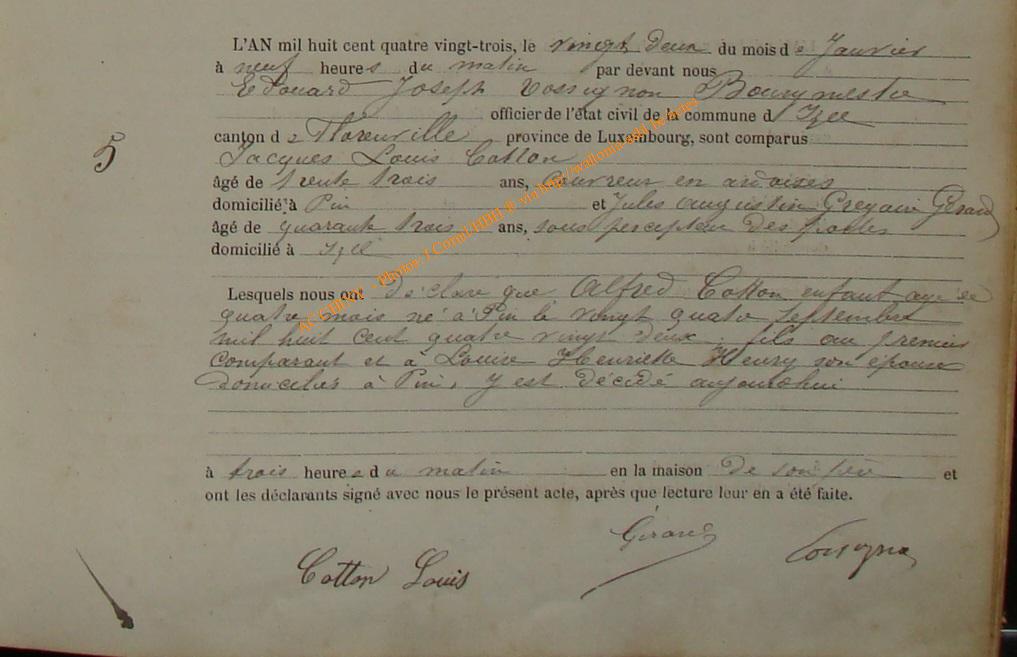 L'AN mil huit cent quatre vingt-trois, le vingt deux du mois de Janvier
à neuf heures du matin par devant nous
Edouard Joseph Rossignon Bourgmestre
officier de l'état civil de la commune d'Izel
canton de Florenville, province de Luxembourg, sont comparus
5
Jacques Louis Cotton
âgé de trente trois ans, couvreur en ardoises
domicilié à Pin et Jules Augustin Grégoire Gérard
âgé de quarante trois ans, sous percepteur des postes
domicilié à Izel
Lesquels nous ont déclaré que Alfred Cotton enfant agé de
quatre mois né à Pin le vingt quatre septembre
mil huit cent quatre vingt deux, fils du premier
comparant et de Louise Henriette Henry son épouse
domiciliés à Pin, y est décédé aujourdhui
à trois heures du matin en la maison de son père et
ont les déclarants signé avec nous le présent acte, après que lecture leur en a été faite.
Cotton Louis
Gérard